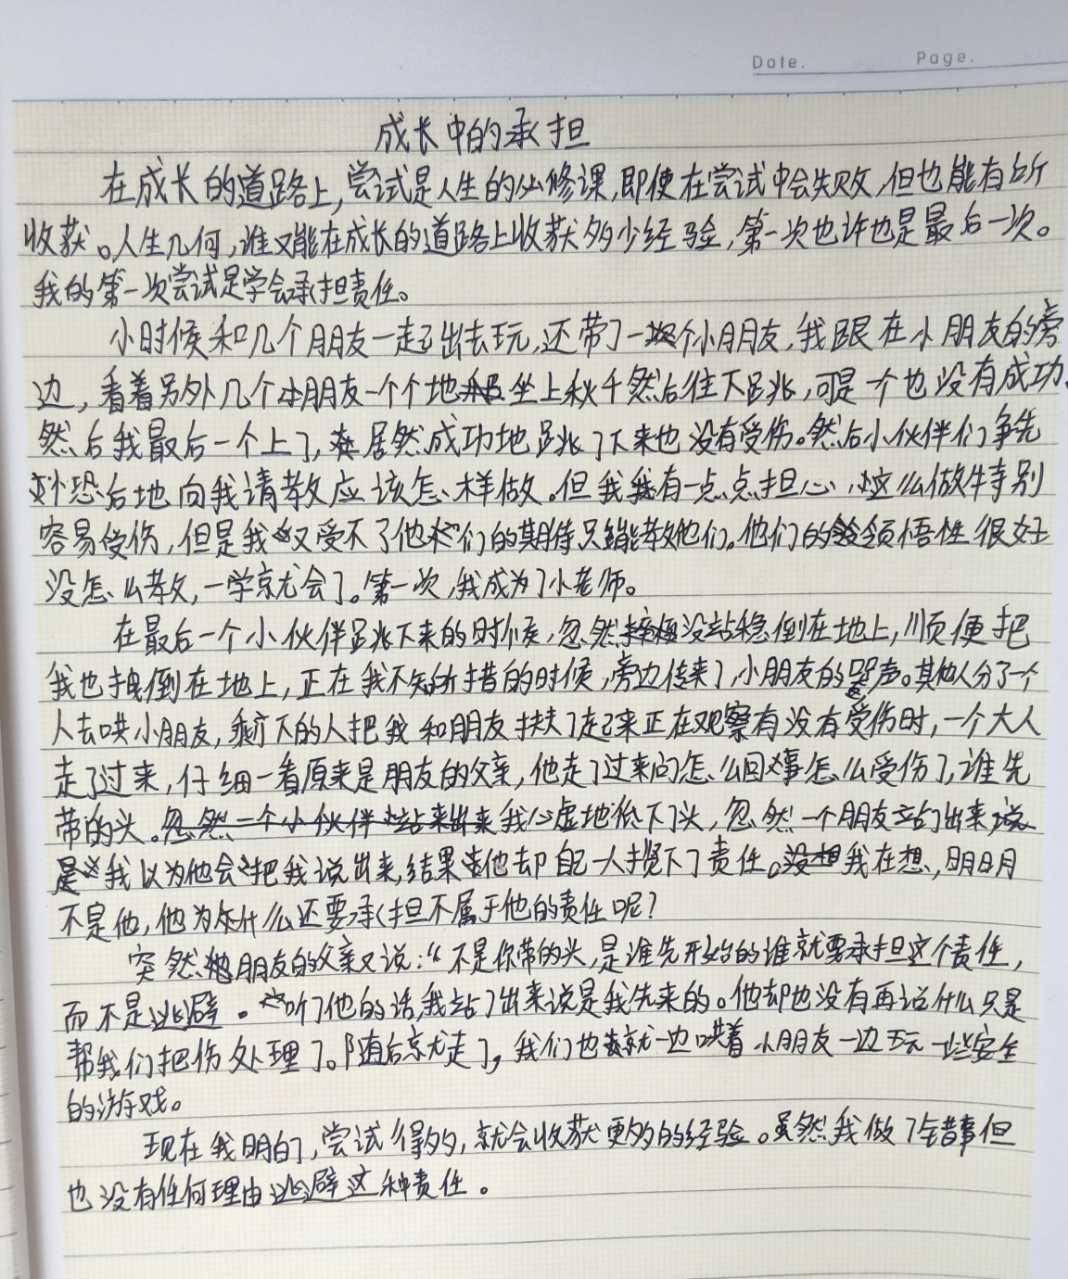 Date.
Page.
成长中的承担
在成长的道路上,尝试是人生的必修课,即使在尝试中会失败,但也能有所
收获。人生几何,谁又能在成长的道路上收获多少经验,第一次也许也是最后一次。
我的第一次尝试是学会承担责任。
小时候和几个朋友一起出去玩,还带了一个小朋友,我跟在小朋友的旁
边,看着另外几个朋友一个个地坐上秋千然后往下跳,可是一个也没有成功,
然后我最后一个上了,居然成功地跳了下来也没有受伤。然后小伙伴们争先
恐后地向我请教应该怎样做。但我有一点点担心,这么做特别
容易受伤,但是我又受不了他们的期待只能教他们。他们的领悟性很好
没怎么教,一学就会了。第一次,我成为了小老师。
在最后一个小伙伴跳下来的时候,忽然没站稳倒在地上,顺便把
我也拽倒在地上,正在我不知所措的时候,旁边传来了小朋友的哭声。其他人分了一个
人去哄小朋友,剩下的人把我和朋友扶了起来正在观察有没有受伤时,一个大人
走了过来,仔细一看原来是朋友的父亲,他走了过来问怎么回事怎么受伤了,谁先
带的头。我心虚地低下了头,忽然一个朋友站了出来,说
是我以为他会把我说出来,结果他却自己一人揽下了责任。我在想,明明
不是他,他为什么还要承担不属于他的责任呢?
突然朋友的父亲又说:“不是你带的头,是谁先开始的谁就要承担这个责任,
而不是逃避。”听了他的话,我站了出来说是我先来的。他却也没有再说什么只是
帮我们把伤处理了。随后就走了,我们也就一边哄着小朋友一边玩一些安全
的游戏。
现在我明白了,尝试得多,就会收获更多的经验。虽然我做了错事但
也没有任何理由逃避这种责任。